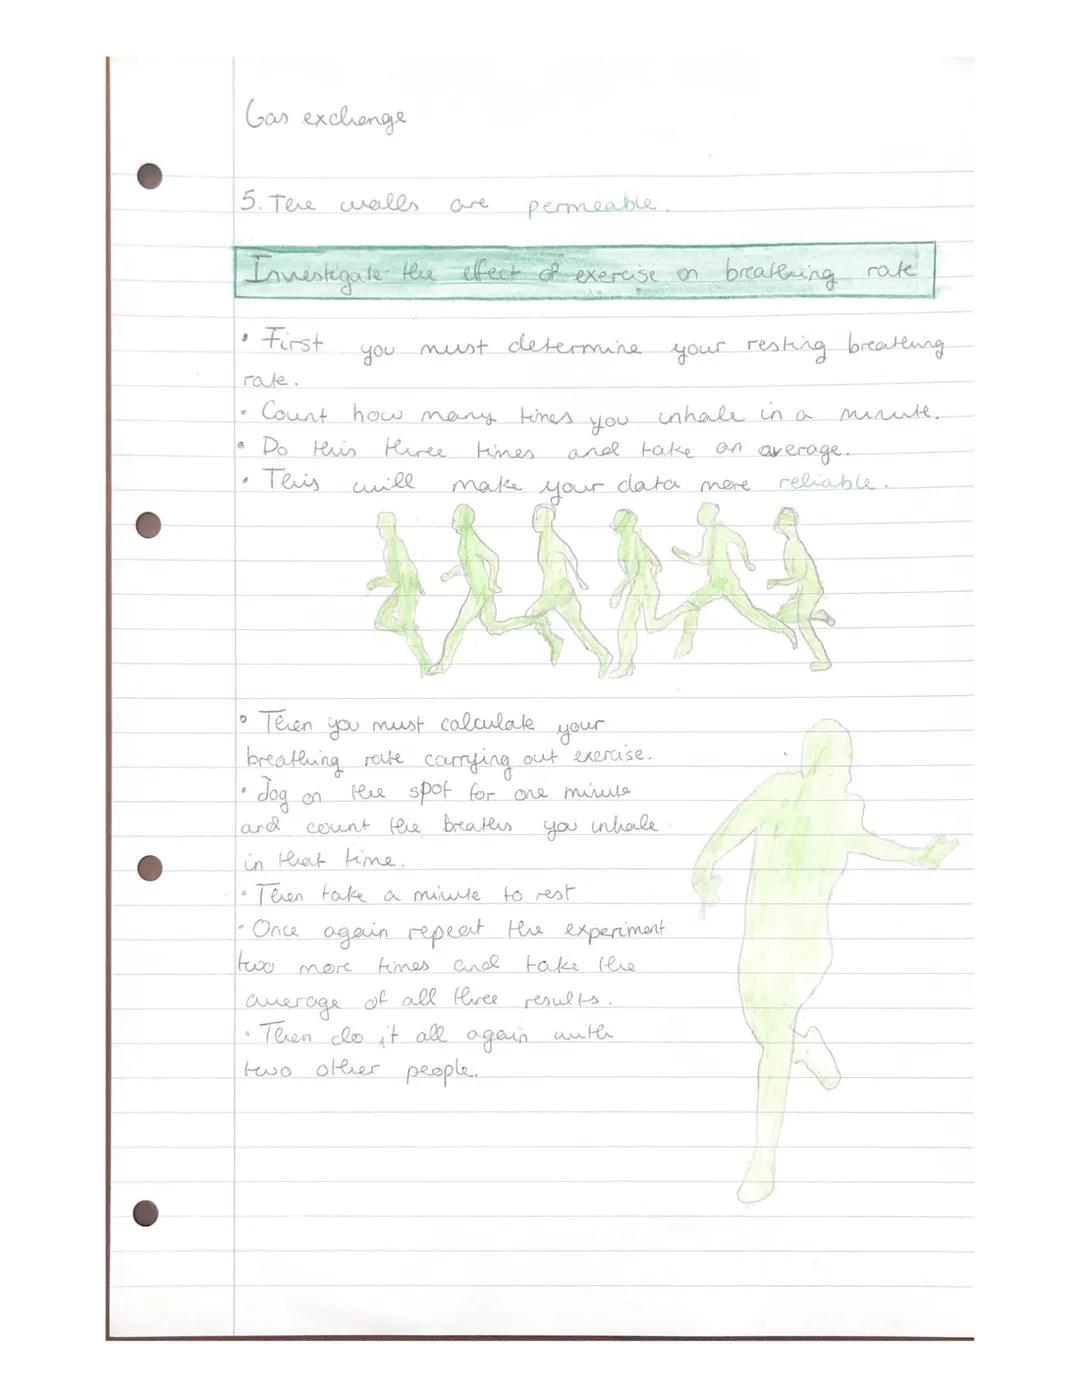 Gas exchange
5. The walls are permeable.
Investigate the effect of exercise on breathing rate
• First you must determine your resting breathing
rate.
• Count how many times you inhale in a minute.
• Do this three times and take an average.
• This will make your data more reliable.
• Then you must calculate your
breathing rate carrying out exercise.
• Jog on the spot for one minute
and count the breaths you inhale
in that time.
• Then take a minute to rest
• Once again repeat the experiment
two more times and take the
average of all three results.
• Then do it all again with
two other people.